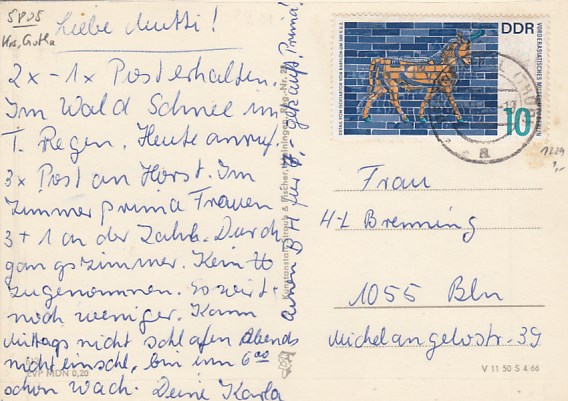 5805
Krs. Gotha
Liebe Mutti!
2x - 1x Post erhalten.
Im Wald Schnee im
T. Regen. Heute anruf.
3x Post an Horst. Im
Zimmer prima Frauen
3 + 1 an der Zahl. Durch
gangszimmer. Kein ℔
zugenommen. So wirt-
noch weniger. Kann
mittags nicht schlafen Abends
nicht einschl, bin um 6 00
schon wach. Deine Karla
einen BH für gekauft. Prima!
EVP MDN 0,20
Kunstanstalt Straub & Fischer, Meiningen
DETAIL VOM ISCHTARTOR VON BABYLON UM 580 V.U.Z.
DDR
VORDERASIATISCHES MUSEUM BERLIN
10
a
1229
Frau
H-L Brenning
1055 Bln
Michelangelostr. 39
V 11 50 S 4 66